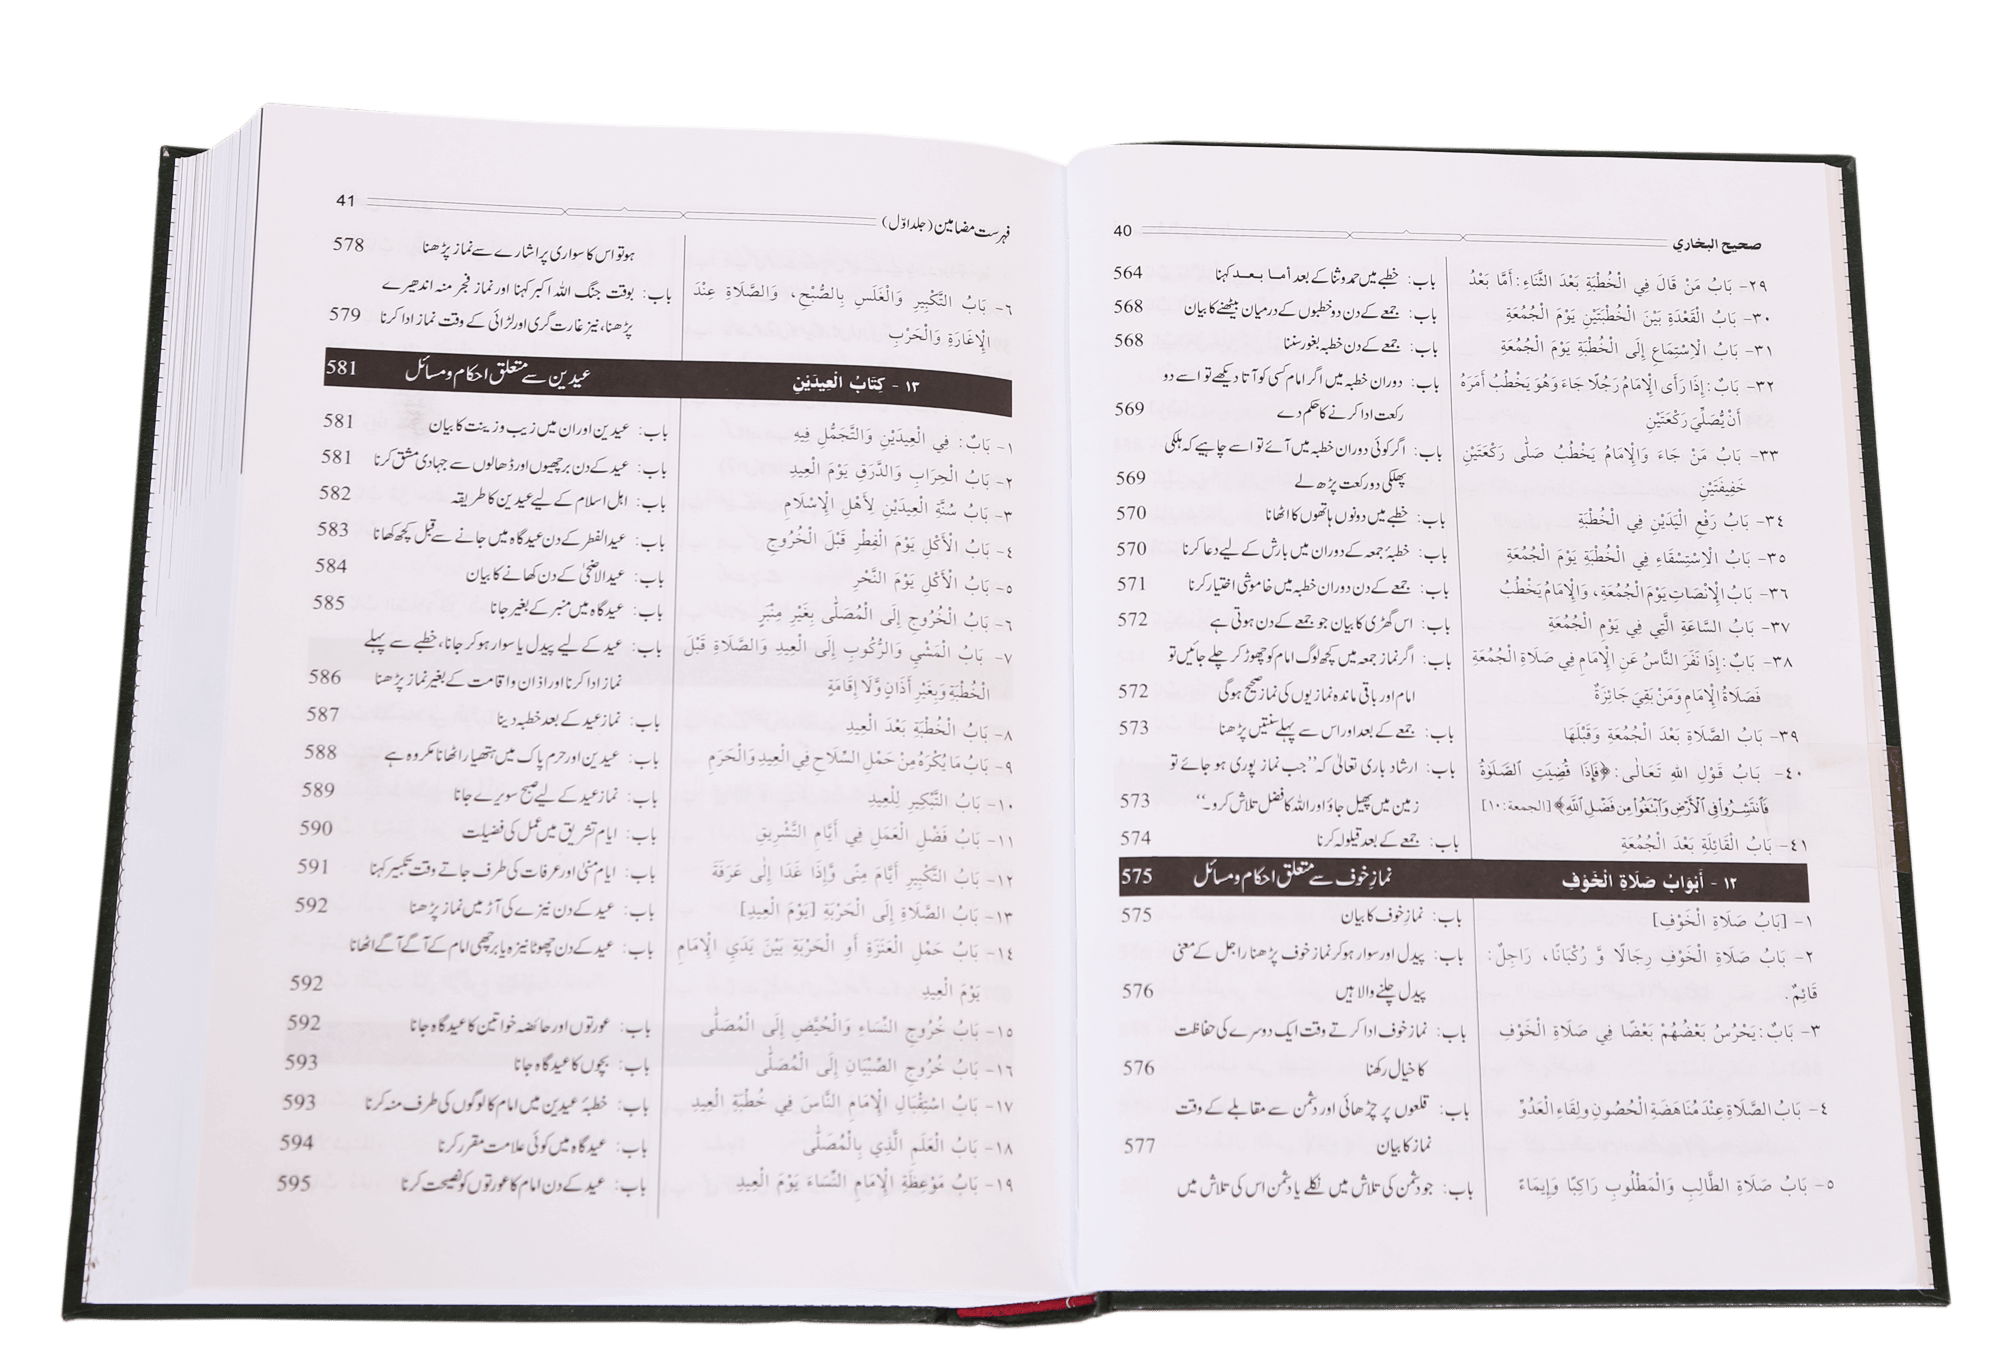 صحيح البخاري 40
٢٩- بَابُ مَنْ قَالَ فِي الْخُطْبَةِ بَعْدَ الثَّنَاءِ: أَمَّا بَعْدُ باب: خطبے میں حمد و ثنا کے بعد أما بعد کہنا 564
٣٠- بَابُ الْقَعْدَةِ بَيْنَ الْخُطْبَتَيْنِ يَوْمَ الْجُمُعَةِ باب: جمعے کے دن دو خطبوں کے درمیان بیٹھنے کا بیان 568
٣١- بَابُ الْاِسْتِمَاعِ إِلَى الْخُطْبَةِ يَوْمَ الْجُمُعَةِ باب: جمعے کے دن خطبہ بغور سننا 568
٣٢- بَابٌ: إِذَا رَأَى الْإِمَامُ رَجُلًا جَاءَ وَهُوَ يَخْطُبُ أَمَرَهُ باب: دوران خطبہ میں اگر امام کسی کو آتا دیکھے تو اسے دو
أَنْ يُّصَلِّيَ رَكْعَتَيْنِ رکعت ادا کرنے کا حکم دے 569
٣٣- بَابُ مَنْ جَاءَ وَالْإِمَامُ يَخْطُبُ صَلَّى رَكْعَتَيْنِ باب: اگر کوئی دوران خطبہ میں آئے تو اسے چاہیے کہ ہلکی
خَفِيفَتَيْنِ پھلکی دو رکعت پڑھ لے 569
٣٤- بَابُ رَفْعِ الْيَدَيْنِ فِي الْخُطْبَةِ باب: خطبے میں دونوں ہاتھوں کا اٹھانا 570
٣٥- بَابُ الْاِسْتِسْقَاءِ فِي الْخُطْبَةِ يَوْمَ الْجُمُعَةِ باب: خطبۂ جمعہ کے دوران میں بارش کے لیے دعا کرنا 570
٣٦- بَابُ الْإِنْصَاتِ يَوْمَ الْجُمُعَةِ، وَالْإِمَامُ يَخْطُبُ باب: جمعے کے دن دوران خطبہ میں خاموشی اختیار کرنا 571
٣٧- بَابُ السَّاعَةِ الَّتِي فِي يَوْمِ الْجُمُعَةِ باب: اس گھڑی کا بیان جو جمعے کے دن ہوتی ہے 572
٣٨- بَابٌ: إِذَا نَفَرَ النَّاسُ عَنِ الْإِمَامِ فِي صَلَاةِ الْجُمُعَةِ باب: اگر نماز جمعہ میں کچھ لوگ امام کو چھوڑ کر چلے جائیں تو
فَصَلَاةُ الْإِمَامِ وَمَنْ بَقِيَ جَائِزَةٌ امام اور باقی ماندہ نمازیوں کی نماز صحیح ہوگی 572
٣٩- بَابُ الصَّلَاةِ بَعْدَ الْجُمُعَةِ وَقَبْلَهَا باب: جمعے کے بعد اور اس سے پہلے سنتیں پڑھنا 573
٤٠- بَابُ قَوْلِ اللهِ تَعَالَى: ﴿فَإِذَا قُضِيَتِ ٱلصَّلَوٰةُ باب: ارشاد باری تعالیٰ کہ ’’جب نماز پوری ہو جائے تو
فَٱنتَشِرُوا۟ فِى ٱلْأَرْضِ وَٱبْتَغُوا۟ مِن فَضْلِ ٱللَّهِ﴾ [الجمعة: ١٠] زمین میں پھیل جاؤ اور اللہ کا فضل تلاش کرو۔‘‘ 573
٤١- بَابُ الْقَائِلَةِ بَعْدَ الْجُمُعَةِ باب: جمعے کے بعد قیلولہ کرنا 574
١٢ - أَبْوَابُ صَلَاةِ الْخَوْفِ نماز خوف سے متعلق احکام و مسائل 575
١- [بَابُ صَلَاةِ الْخَوْفِ] باب: نماز خوف کا بیان 575
٢- بَابُ صَلَاةِ الْخَوْفِ رِجَالًا وَّ رُكْبَانًا، رَاجِلٌ: باب: پیدل اور سوار ہو کر نماز خوف پڑھنا راجل کے معنی
قَائِمٌ. پیدل چلنے والا ہیں 576
٣- بَابٌ: يَحْرُسُ بَعْضُهُمْ بَعْضًا فِي صَلَاةِ الْخَوْفِ باب: نماز خوف ادا کرتے وقت ایک دوسرے کی حفاظت
کا خیال رکھنا 576
٤- بَابُ الصَّلَاةِ عِنْدَ مُنَاهَضَةِ الْحُصُونِ وَلِقَاءِ الْعَدُوِّ باب: قلعوں پر چڑھائی اور دشمن سے مقابلے کے وقت
نماز کا بیان 577
٥- بَابُ صَلَاةِ الطَّالِبِ وَالْمَطْلُوبِ رَاكِبًا وَإِيمَاءً باب: جو دشمن کی تلاش میں نکلے یا دشمن اس کی تلاش میں
فہرست مضامین (جلد اوّل) 41
ہو تو اس کا سواری پر اشارے سے نماز پڑھنا 578
٦- بَابُ التَّكْبِيرِ وَالْغَلَسِ بِالصُّبْحِ، وَالصَّلَاةِ عِنْدَ باب: بوقت جنگ اللہ اکبر کہنا اور نماز فجر منہ اندھیرے
الْإِغَارَةِ وَالْحَرْبِ پڑھنا، نیز غارت گری اور لڑائی کے وقت نماز ادا کرنا 579
١٣ - كِتَابُ الْعِيدَيْنِ عیدین سے متعلق احکام و مسائل 581
١- بَابٌ: فِي الْعِيدَيْنِ وَالتَّجَمُّلِ فِيهِ باب: عیدین اور ان میں زیب و زینت کا بیان 581
٢- بَابُ الْحِرَابِ وَالدَّرَقِ يَوْمَ الْعِيدِ باب: عید کے دن برچھیوں اور ڈھالوں سے جہادی مشق کرنا 581
٣- بَابُ سُنَّةِ الْعِيدَيْنِ لِأَهْلِ الْإِسْلَامِ باب: اہل اسلام کے لیے عیدین کا طریقہ 582
٤- بَابُ الْأَكْلِ يَوْمَ الْفِطْرِ قَبْلَ الْخُرُوجِ باب: عید الفطر کے دن عیدگاہ میں جانے سے قبل کچھ کھانا 583
٥- بَابُ الْأَكْلِ يَوْمَ النَّحْرِ باب: عید الاضحیٰ کے دن کھانے کا بیان 584
٦- بَابُ الْخُرُوجِ إِلَى الْمُصَلَّى بِغَيْرِ مِنْبَرٍ باب: عیدگاہ میں منبر کے بغیر جانا 585
٧- بَابُ الْمَشْيِ وَالرُّكُوبِ إِلَى الْعِيدِ وَالصَّلَاةِ قَبْلَ باب: عید کے لیے پیدل یا سوار ہو کر جانا، خطبے سے پہلے
الْخُطْبَةِ وَبِغَيْرِ أَذَانٍ وَّلَا إِقَامَةٍ نماز ادا کرنا اور اذان و اقامت کے بغیر نماز پڑھنا 586
٨- بَابُ الْخُطْبَةِ بَعْدَ الْعِيدِ باب: نماز عید کے بعد خطبہ دینا 587
٩- بَابُ مَا يُكْرَهُ مِنْ حَمْلِ السِّلَاحِ فِي الْعِيدِ وَالْحَرَمِ باب: عیدین اور حرم پاک میں ہتھیار اٹھانا مکروہ ہے 588
١٠- بَابُ التَّبْكِيرِ لِلْعِيدِ باب: نماز عید کے لیے صبح سویرے جانا 589
١١- بَابُ فَضْلِ الْعَمَلِ فِي أَيَّامِ التَّشْرِيقِ باب: ایام تشریق میں عمل کی فضیلت 590
١٢- بَابُ التَّكْبِيرِ أَيَّامَ مِنًى وَّإِذَا غَدَا إِلَى عَرَفَةَ باب: ایام منیٰ اور عرفات کی طرف جاتے وقت تکبیر کہنا 591
١٣- بَابُ الصَّلَاةِ إِلَى الْحَرْبَةِ [يَوْمَ الْعِيدِ] باب: عید کے دن نیزے کی آڑ میں نماز پڑھنا 592
١٤- بَابُ حَمْلِ الْعَنَزَةِ أَوِ الْحَرْبَةِ بَيْنَ يَدَيِ الْإِمَامِ باب: عید کے دن چھوٹا نیزہ یا برچھی امام کے آگے آگے اٹھانا
يَوْمَ الْعِيدِ 592
١٥- بَابُ خُرُوجِ النِّسَاءِ وَالْحُيَّضِ إِلَى الْمُصَلَّى باب: عورتوں اور حائضہ خواتین کا عیدگاہ جانا 592
١٦- بَابُ خُرُوجِ الصِّبْيَانِ إِلَى الْمُصَلَّى باب: بچوں کا عیدگاہ جانا 593
١٧- بَابُ اسْتِقْبَالِ الْإِمَامِ النَّاسَ فِي خُطْبَةِ الْعِيدِ باب: خطبۂ عیدین میں امام کا لوگوں کی طرف منہ کرنا 593
١٨- بَابُ الْعَلَمِ الَّذِي بِالْمُصَلَّى باب: عیدگاہ میں کوئی علامت مقرر کرنا 594
١٩- بَابُ مَوْعِظَةِ الْإِمَامِ النِّسَاءَ يَوْمَ الْعِيدِ باب: عید کے دن امام کا عورتوں کو نصیحت کرنا 595